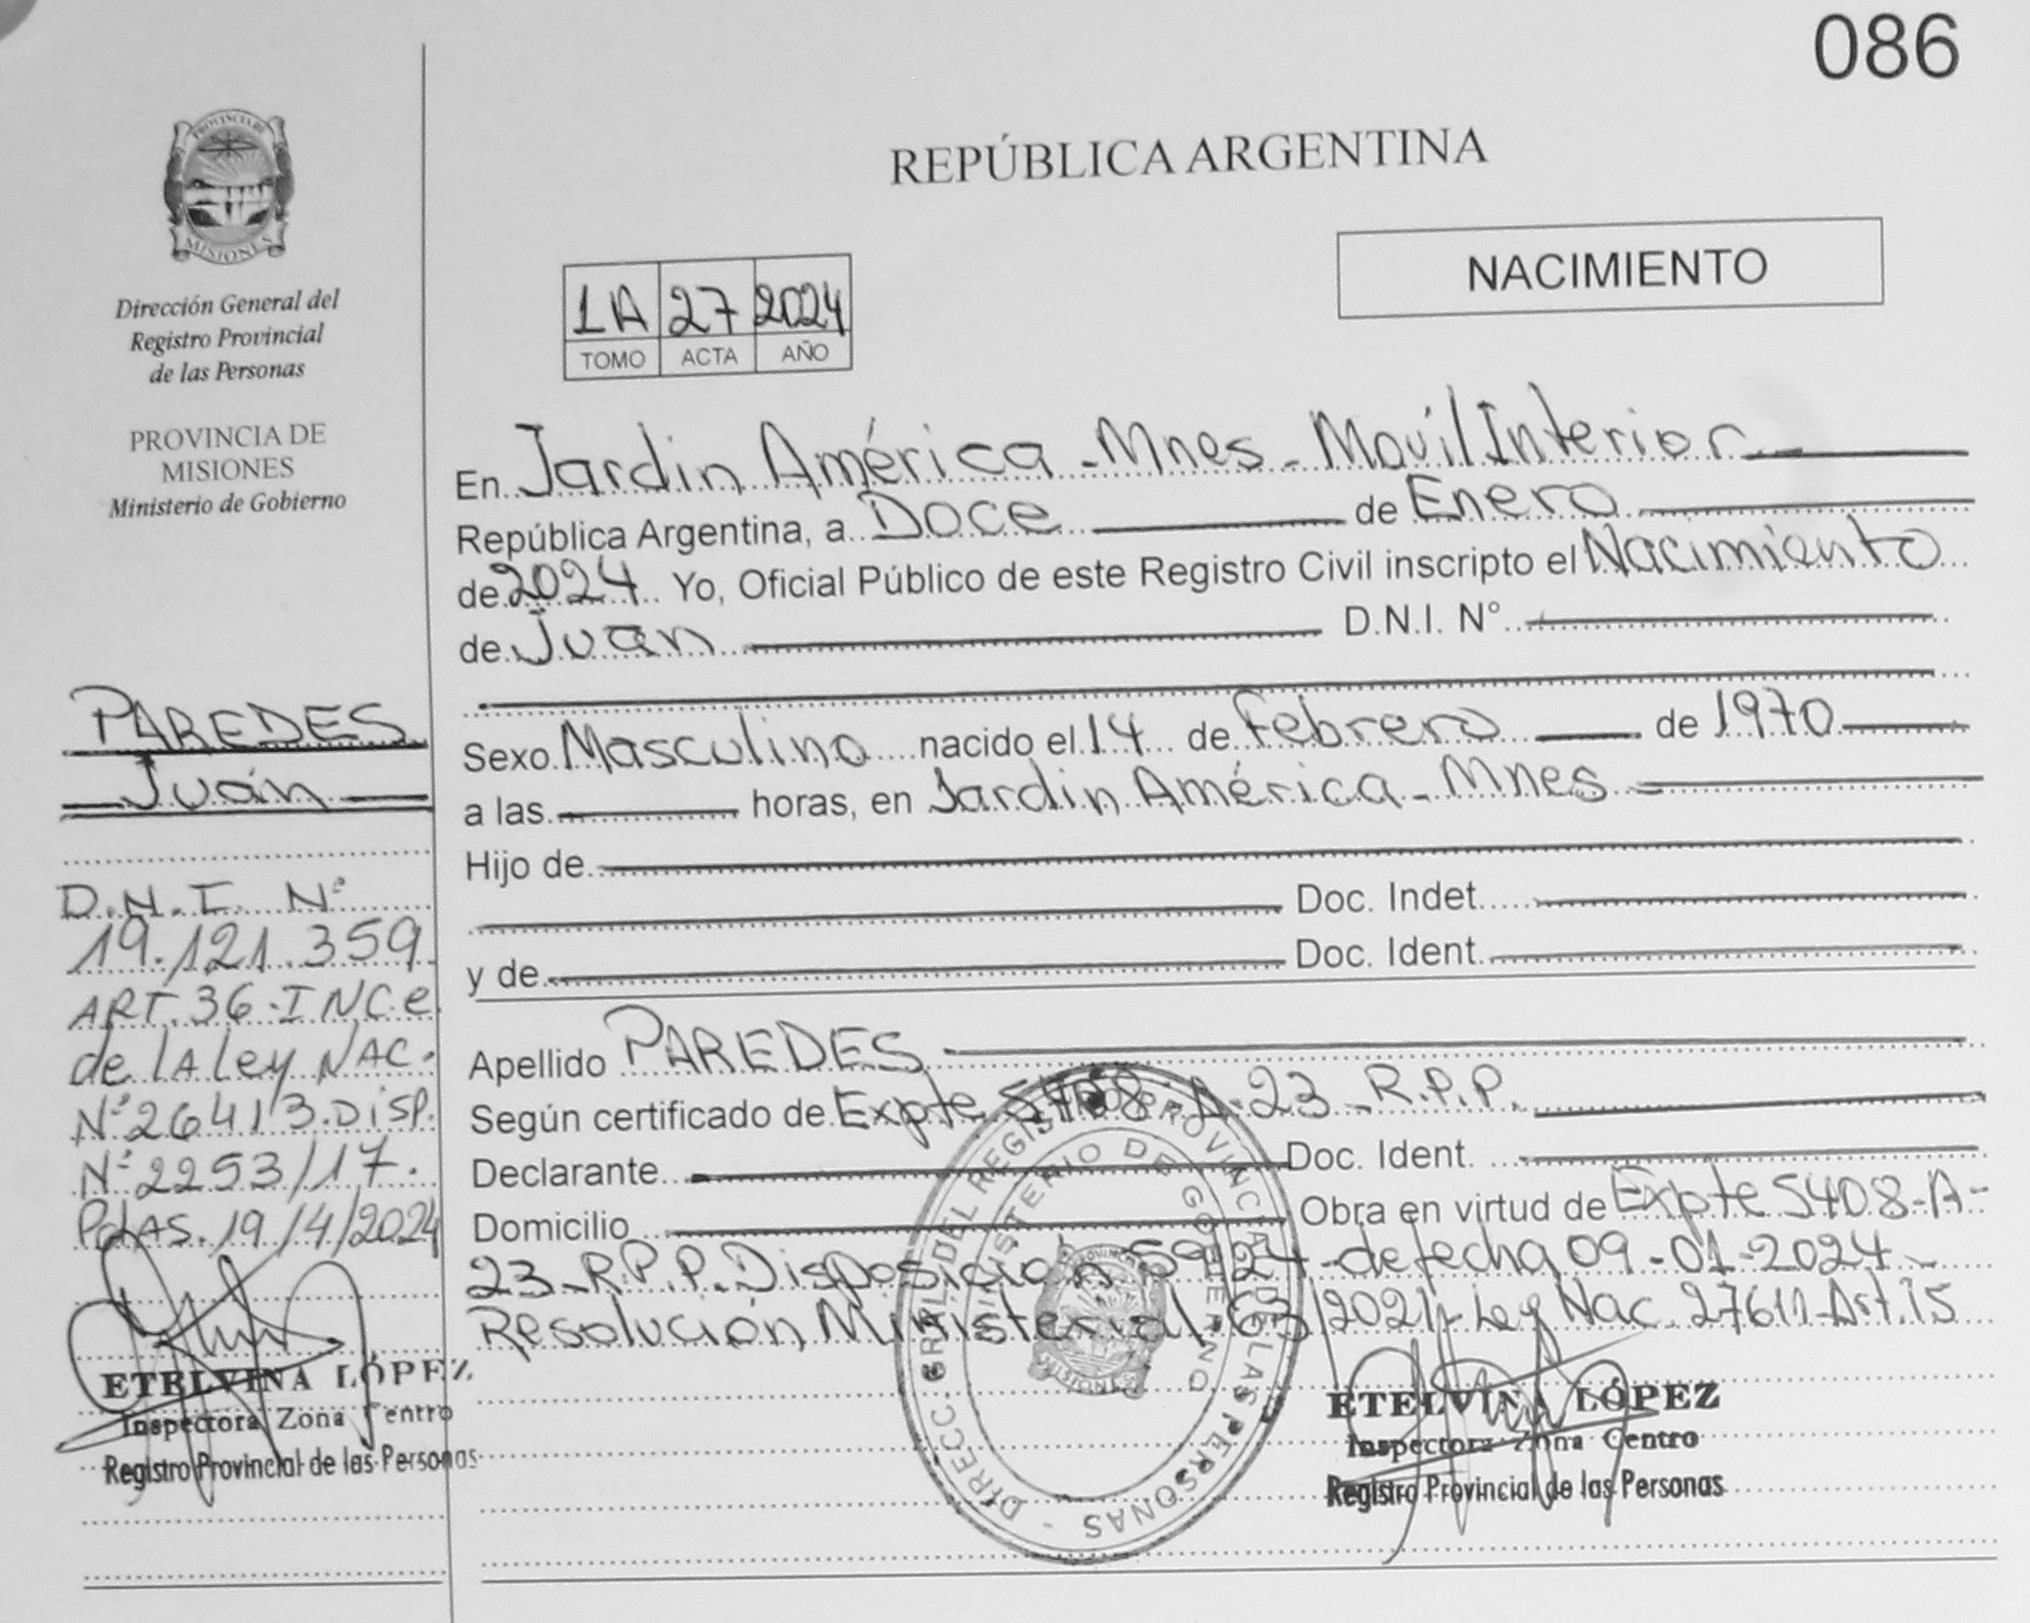 086
PROVINCIA DE
MISIONES
Dirección General del
Registro Provincial
de las Personas
PROVINCIA DE
MISIONES
Ministerio de Gobierno
PAREDES
Juán
D.N.I. Nº
19.121.359
ART.36-INC.e
de lA ley NAC.
Nº26413.DISP.
Nº2253/17.
PdAS.19/4/2024
ETELVINA LÓPEZ
Inspectora Zona Centro
Registro Provincial de las Personas
REPÚBLICA ARGENTINA
NACIMIENTO
1A 27 2024
TOMO ACTA AÑO
En Jardin América - Mnes - Movil Interior
República Argentina, a Doce de Enero
de 2024 Yo, Oficial Público de este Registro Civil inscripto el Nacimiento
de Juan D.N.I. N°
Sexo Masculino nacido el 14 de Febrero de 1970
a las horas, en Jardin América - Mnes
Hijo de
Doc. Indet.
y de Doc. Ident.
Apellido PAREDES
Según certificado de Expte 5408-A-23-R.P.P.
Declarante Doc. Ident.
Domicilio Obra en virtud de Expte 5408-A-
23-R.P.P. Disposición 59/24-de fecha 09-01-2024-
Resolución Ministerial 63/2021-Ley Nac. 27611-Art.15
DIRECC. GRAL. DEL REGISTRO PROVINCIAL DE LAS PERSONAS -
MINISTERIO DE GOBIERNO
ETELVINA LÓPEZ
Inspectora Zona Centro
Registro Provincial de las Personas